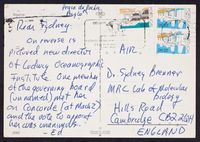 Dear Sydney
On reverse is
pictured new director
of Ludwig Oceanographic
Institute. One member
of the governing board
(un named) met her
on Concorde (at Mach2)
and the vote to appoint
her was unanymous.
— E B
AIR
Dr. Sydney Brenner
MRC Lab of Molecular
Biology
Hills Road
Cambridge CB2 2QH
ENGLAND